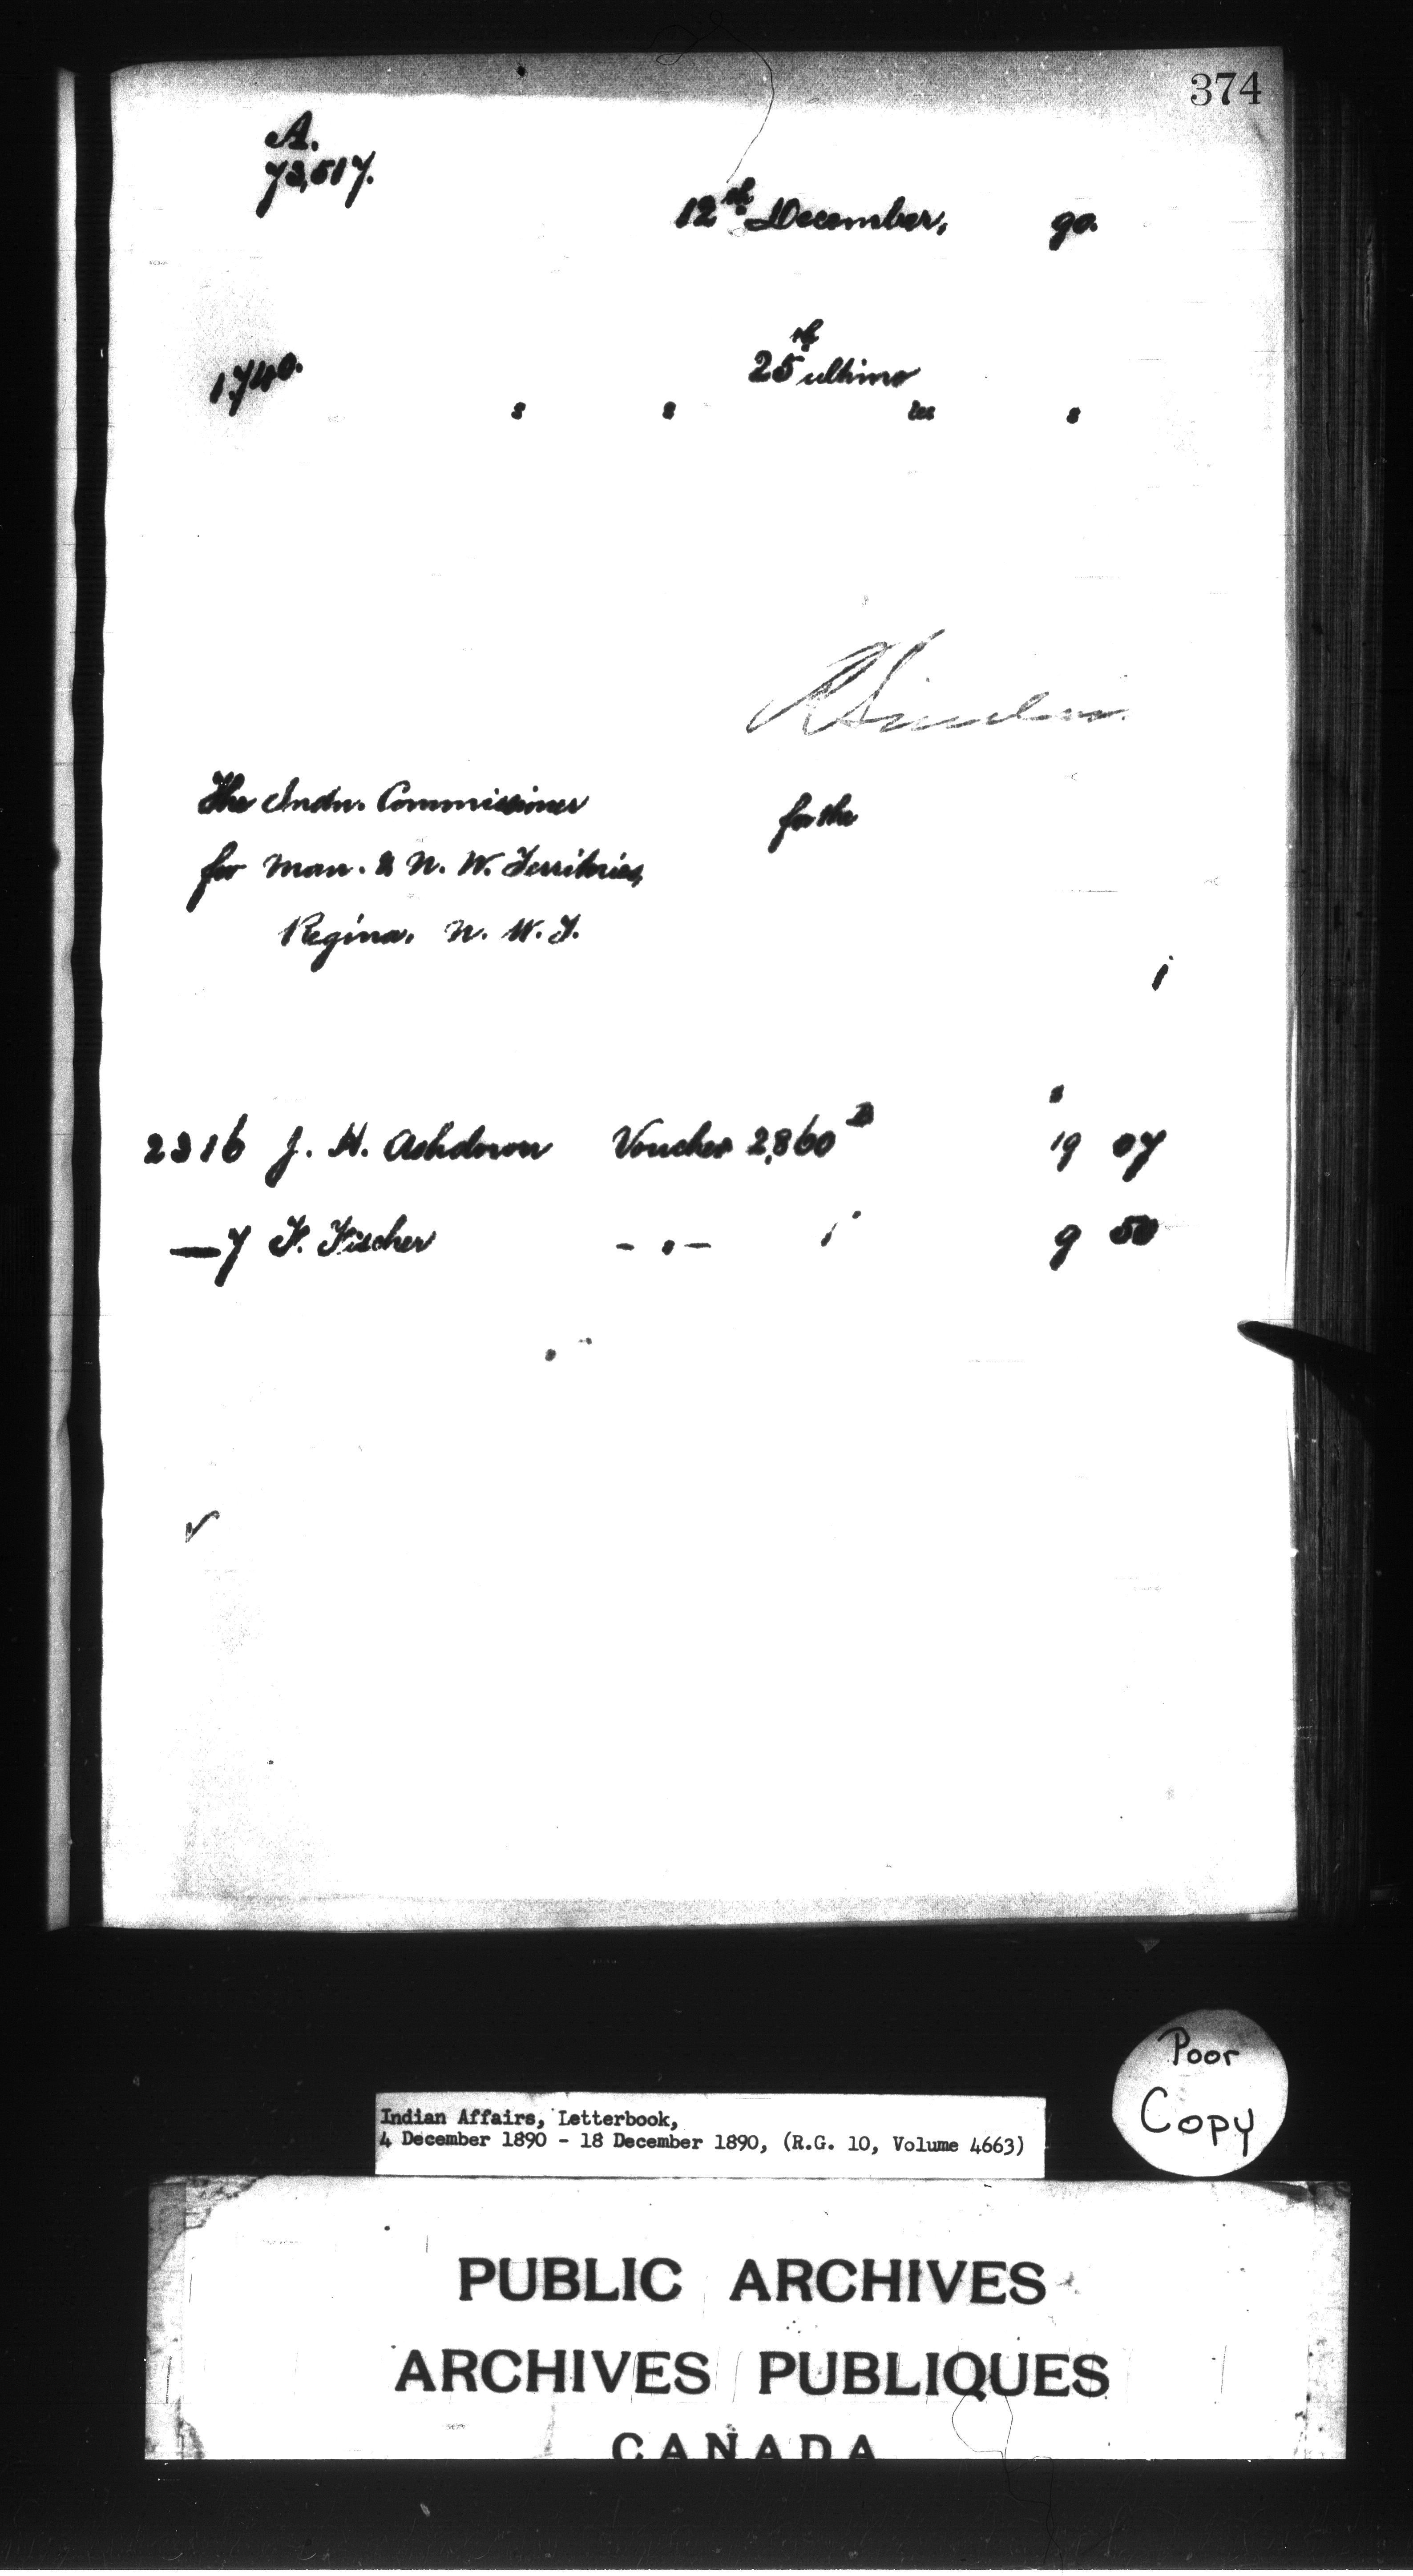 374
A.
73,517.
12th December, 90.
1,740.
25th ultimo
s s ies s
R Sinclair
The Indn. Commissioner for the
for Man. & N. W. Territories,
Regina, N. W. T.
1
s
2316 J. H. Ashdown Voucher 2,860 19 07
— 7 F. Fischer - " - 1 9 50
Poor
Copy
Indian Affairs, Letterbook,
4 December 1890 - 18 December 1890, (R.G. 10, Volume 4663)
PUBLIC ARCHIVES
ARCHIVES PUBLIQUES
CANADA